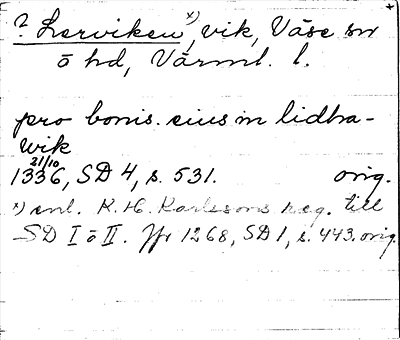 ? Lerviken x), vik, Väse sn
ö hd, Värml. l.
pro bonis eius in lidha-
wik
21/10
1336, SD 4, s. 531. orig.
x) enl. K. H. Karlssons reg. till
SD I o II. Jfr 1268, SD 1, s. 443. orig.